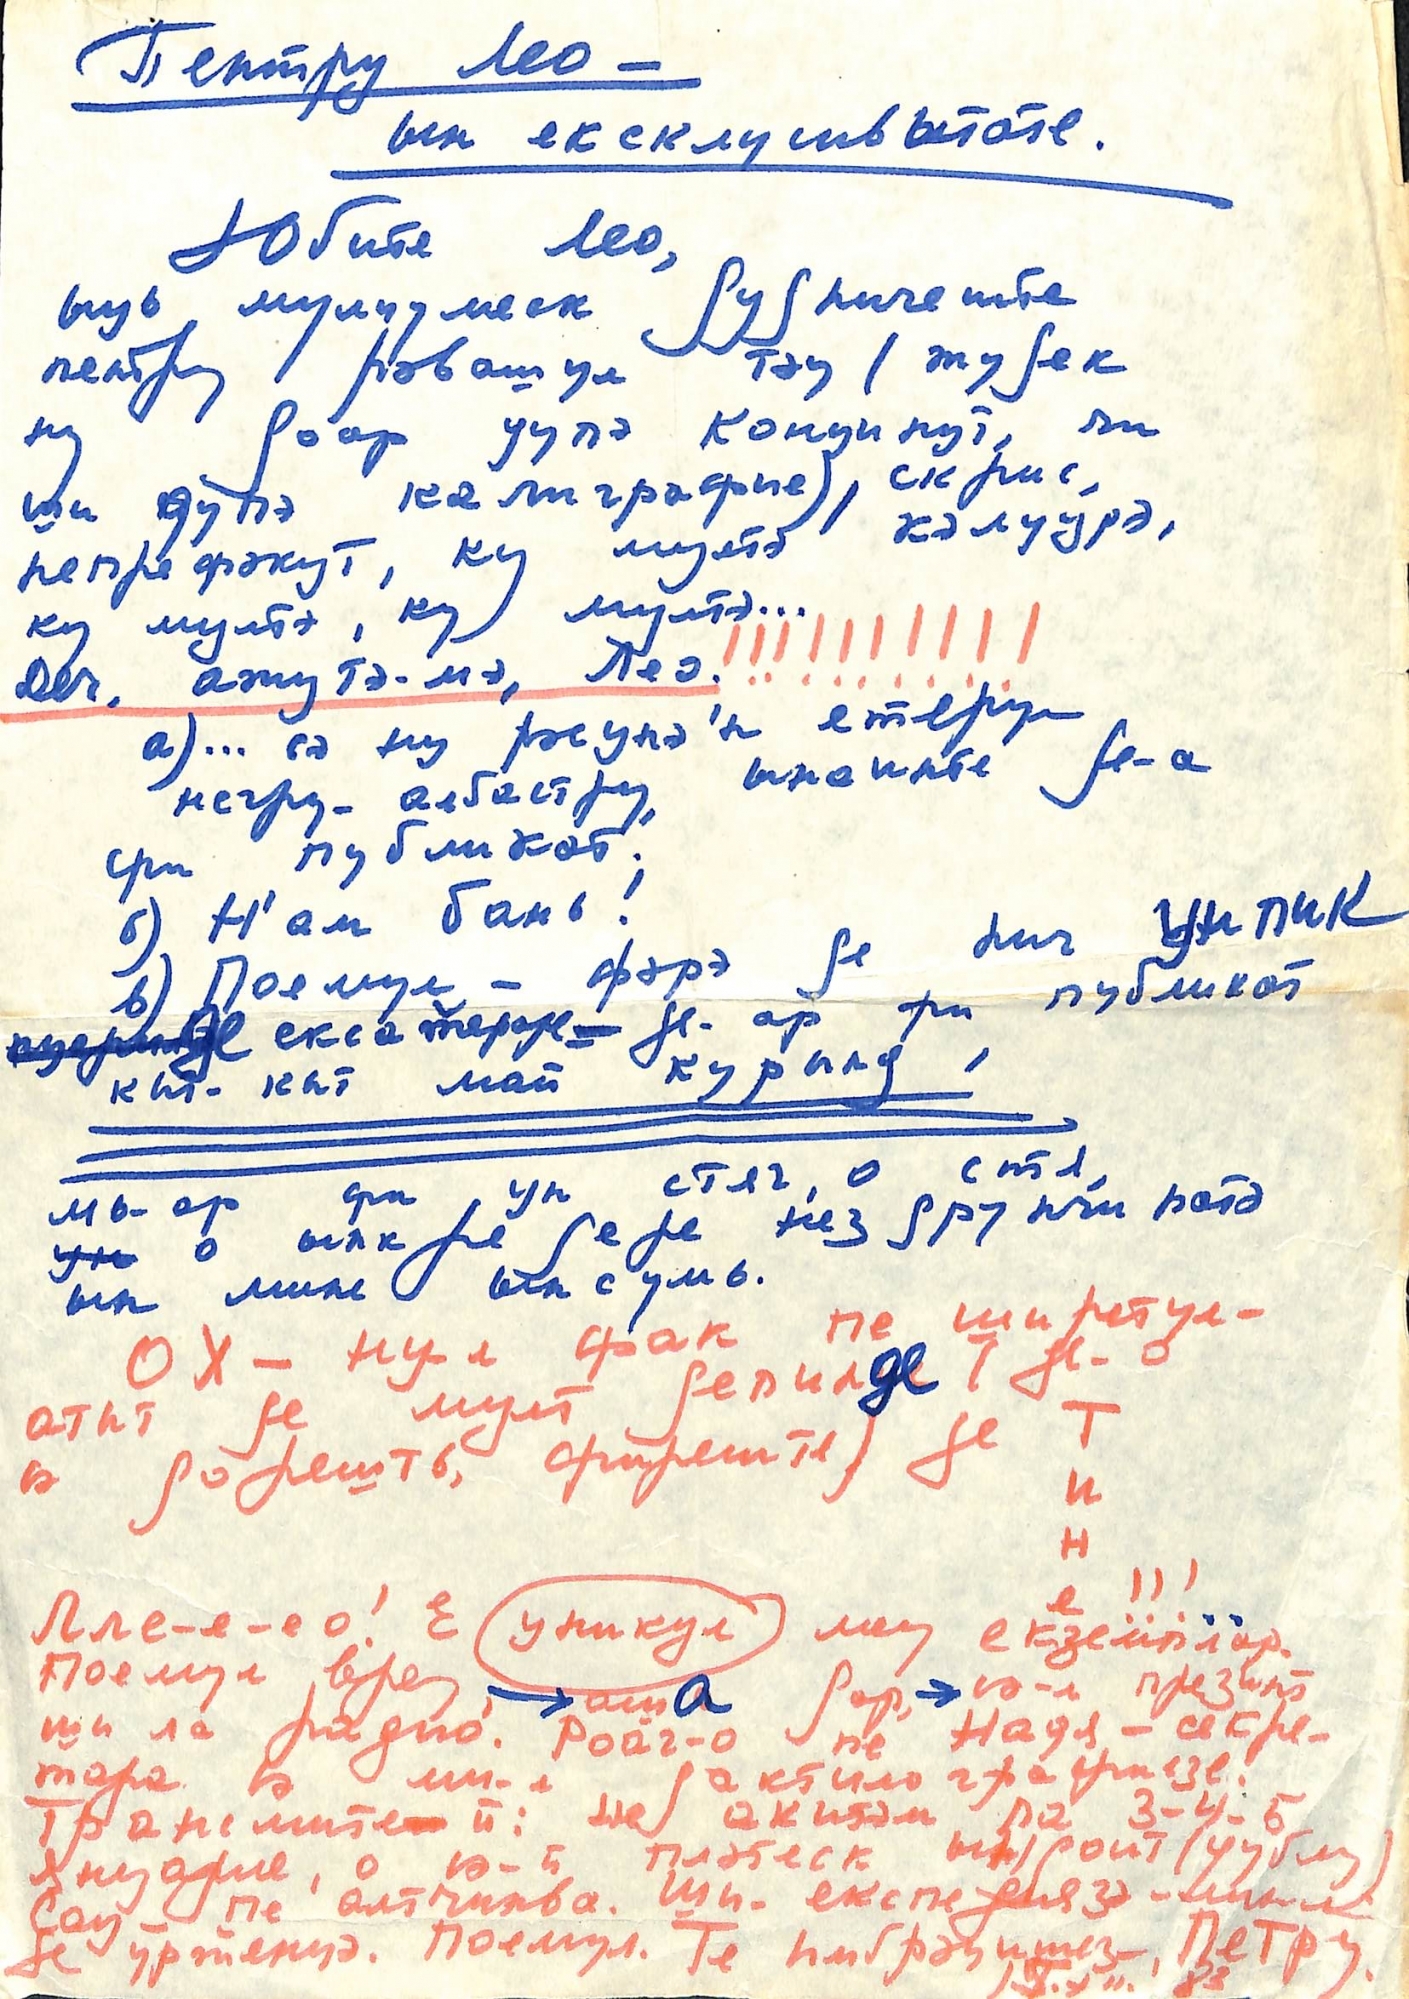 Пентру Лео –
ын ексклусивитате.
Юбите Лео,
ыць мулцумеск думничеште
пентру рэвашул тэу (жудек
ну доар дупэ концинут, чи
ши дупэ калиграфие), скрис,
непрефэкут, ку мултэ кэлдурэ,
ку мултэ, ку мултэ...
Деч, ажутэ-мэ, Лео.!!!!!!!!!!
а)... сэ ну рэсунэ'н етерул
негру-албастру, ынаинте де-а
фи публикат!
б) Н'ам бань!
в) Поемул – фэрэ де нич ун пик
де екзаӂераре – де-ар фи публикат
кыт-кыт май курынд,
мь-ар фи ун стяг, о стя,
о ынкредере нездрунчинатэ
ын мине ынсумь.
ОХ – ну-л фак пе ширетул –
атыт де мулт депинде (де-о
сэ дорешть, фиреште) де
Т
и
н
е !!!...
Лле-е-е-ео! Е уникул меу екземплар.
Поемул вреу, → аша дар, → сэ-л презинт
ши ла радио. Роаг-о пе Надя – секре-
тара сэ ми-л дактилографиезе!
Трансмите-й: не ачитэм па 3-4-5
януарие, о сэ-й плэтеск ындоит (дублу)
сау – пе алтчинва. Ши – експедиязэ-ми-л
де урженцэ. Поемул. Те ымбрэцишез –, Петру.